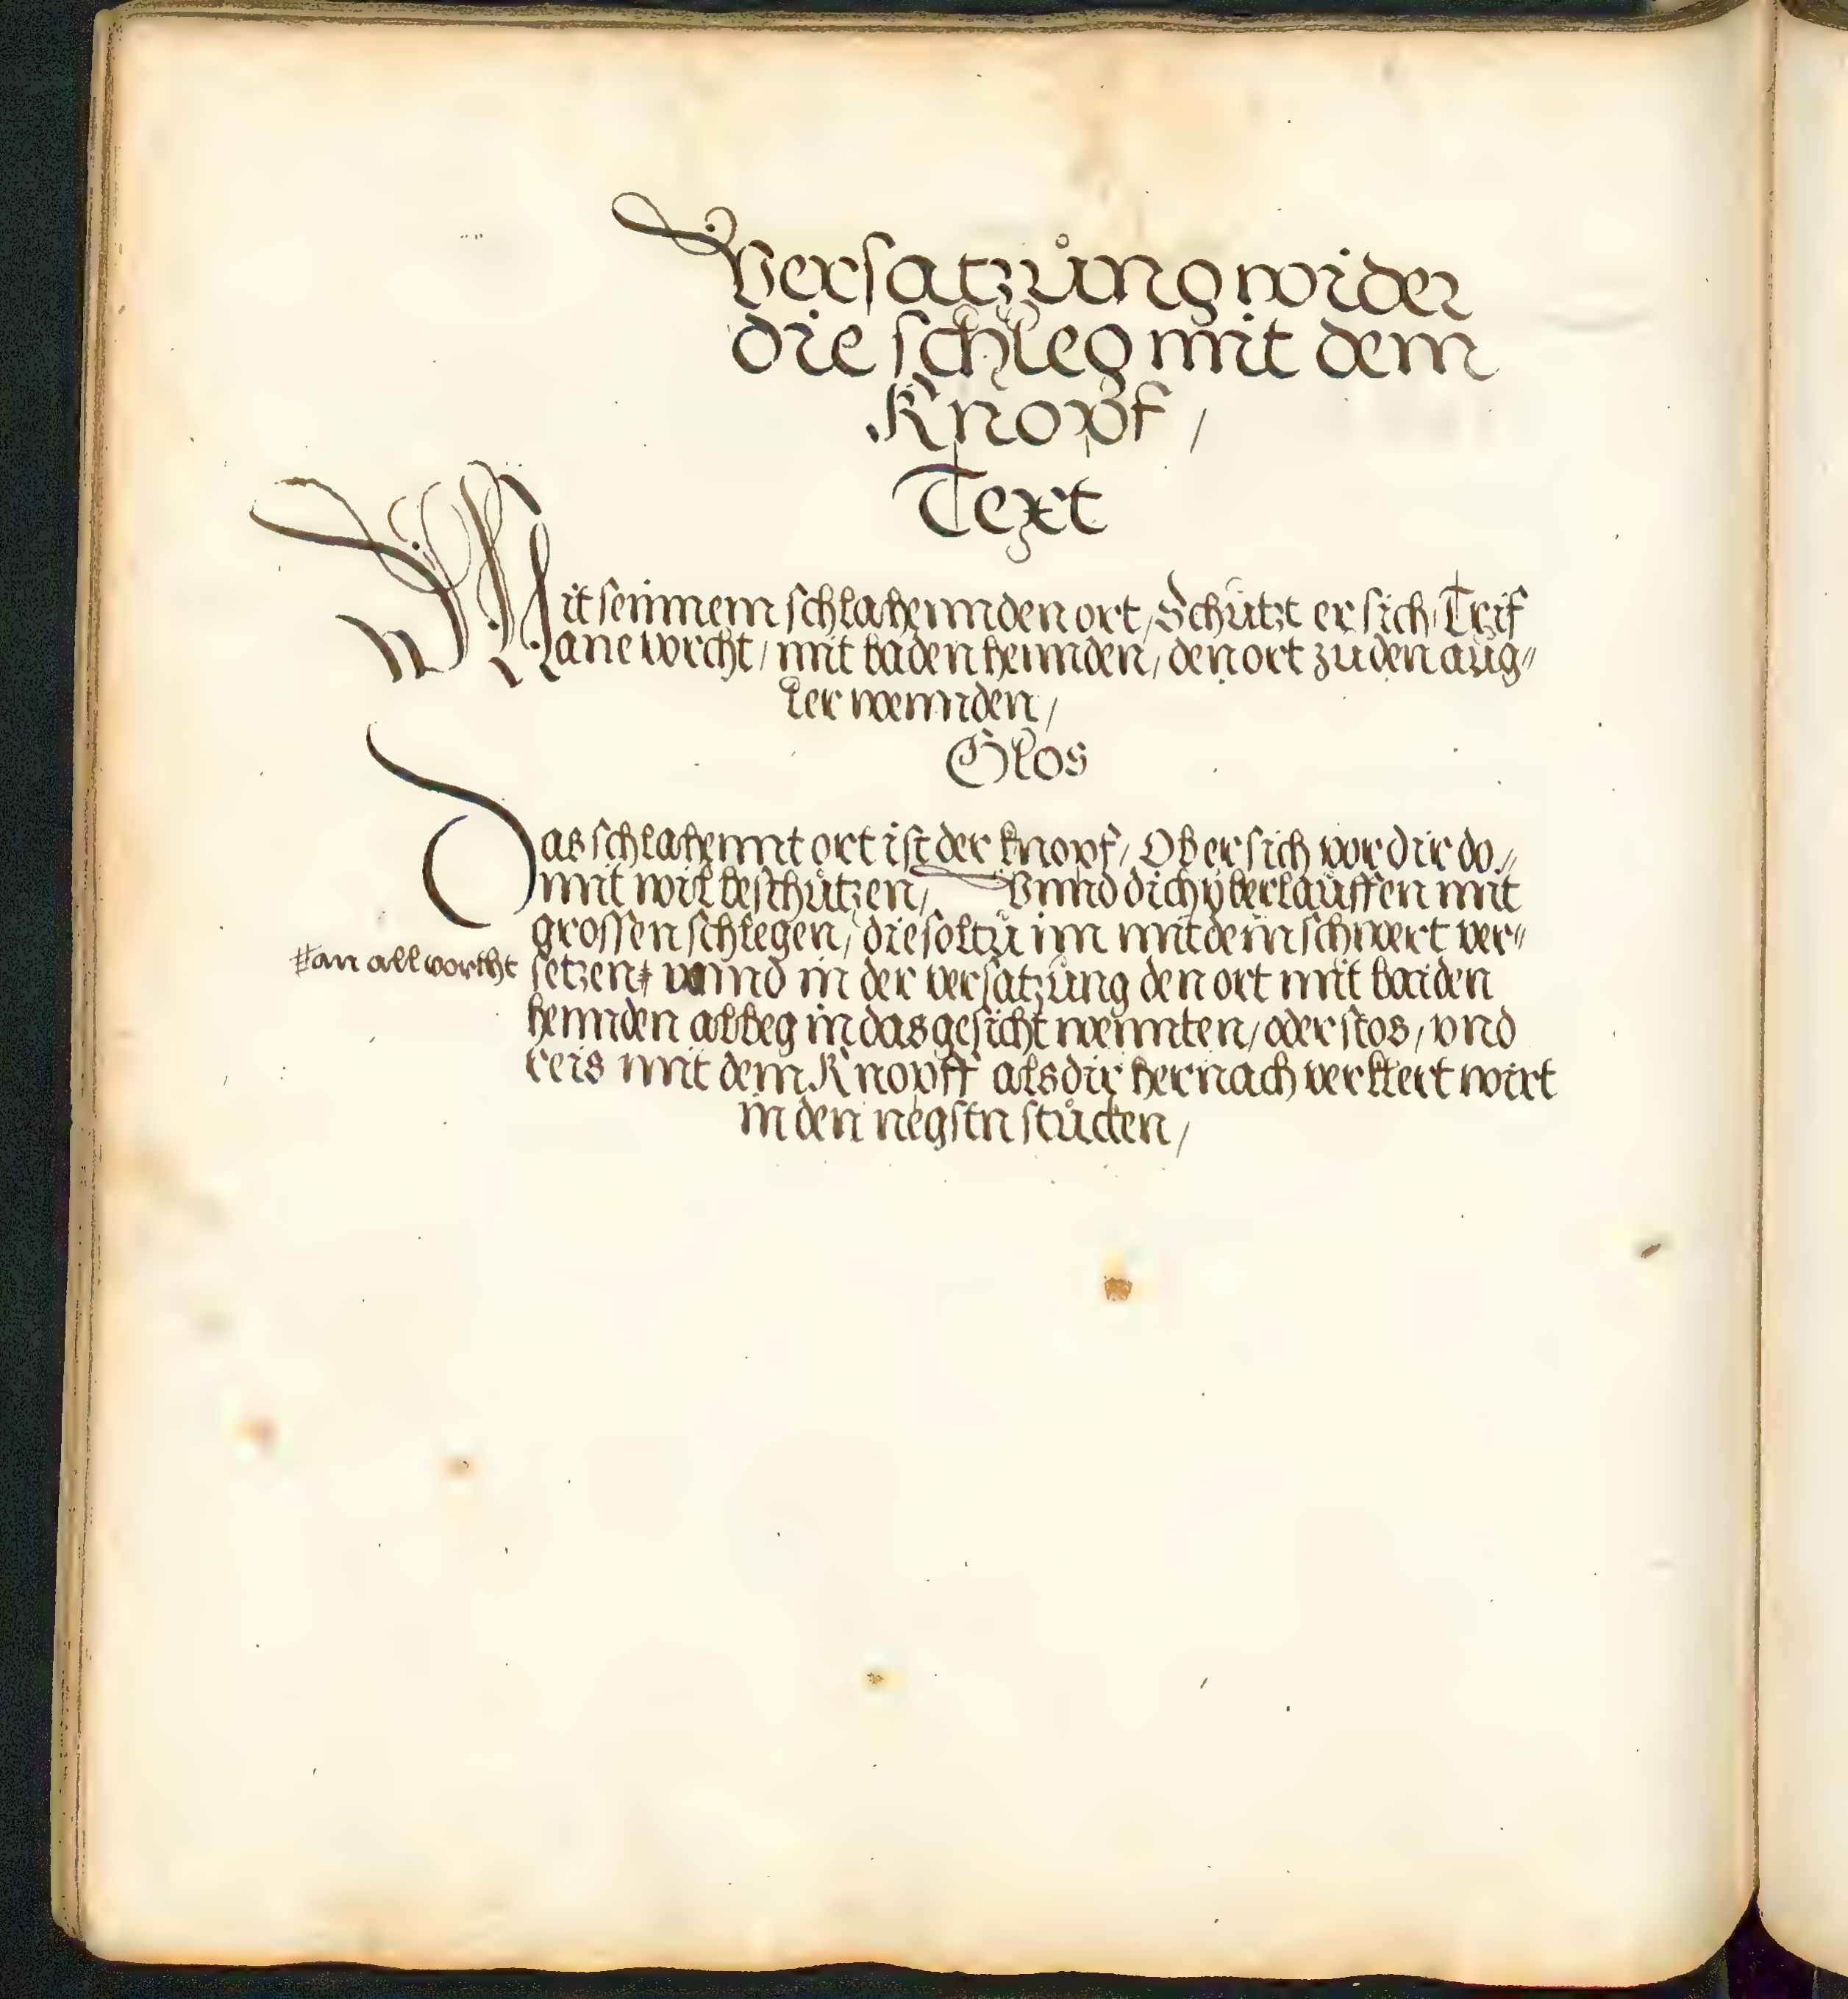 Versatzůng wider
die schleg mit dem
Knopf /
Text
Mit seinnem schlahennden ort / Schützt er sich / Trif
ane vorcht / mit baden hennden / den ort zů den aůg=
ter wennden /
Glos
Das schlahennt ort ist der knopf / Ob er sich vor dir do=
mit wil beschützen / Vnnd dich vberlauffen mit
grossen schlegen / die soltů im mit dem schwert ver=
#an all vorcht
setzen # vnnd in der versatzůng den ort mit baiden
hennden albeg in das gesicht wennten / oder stos / vnd
reis mit dem Knopff als dir hernach verklert wirt
in den negstn stůcken /